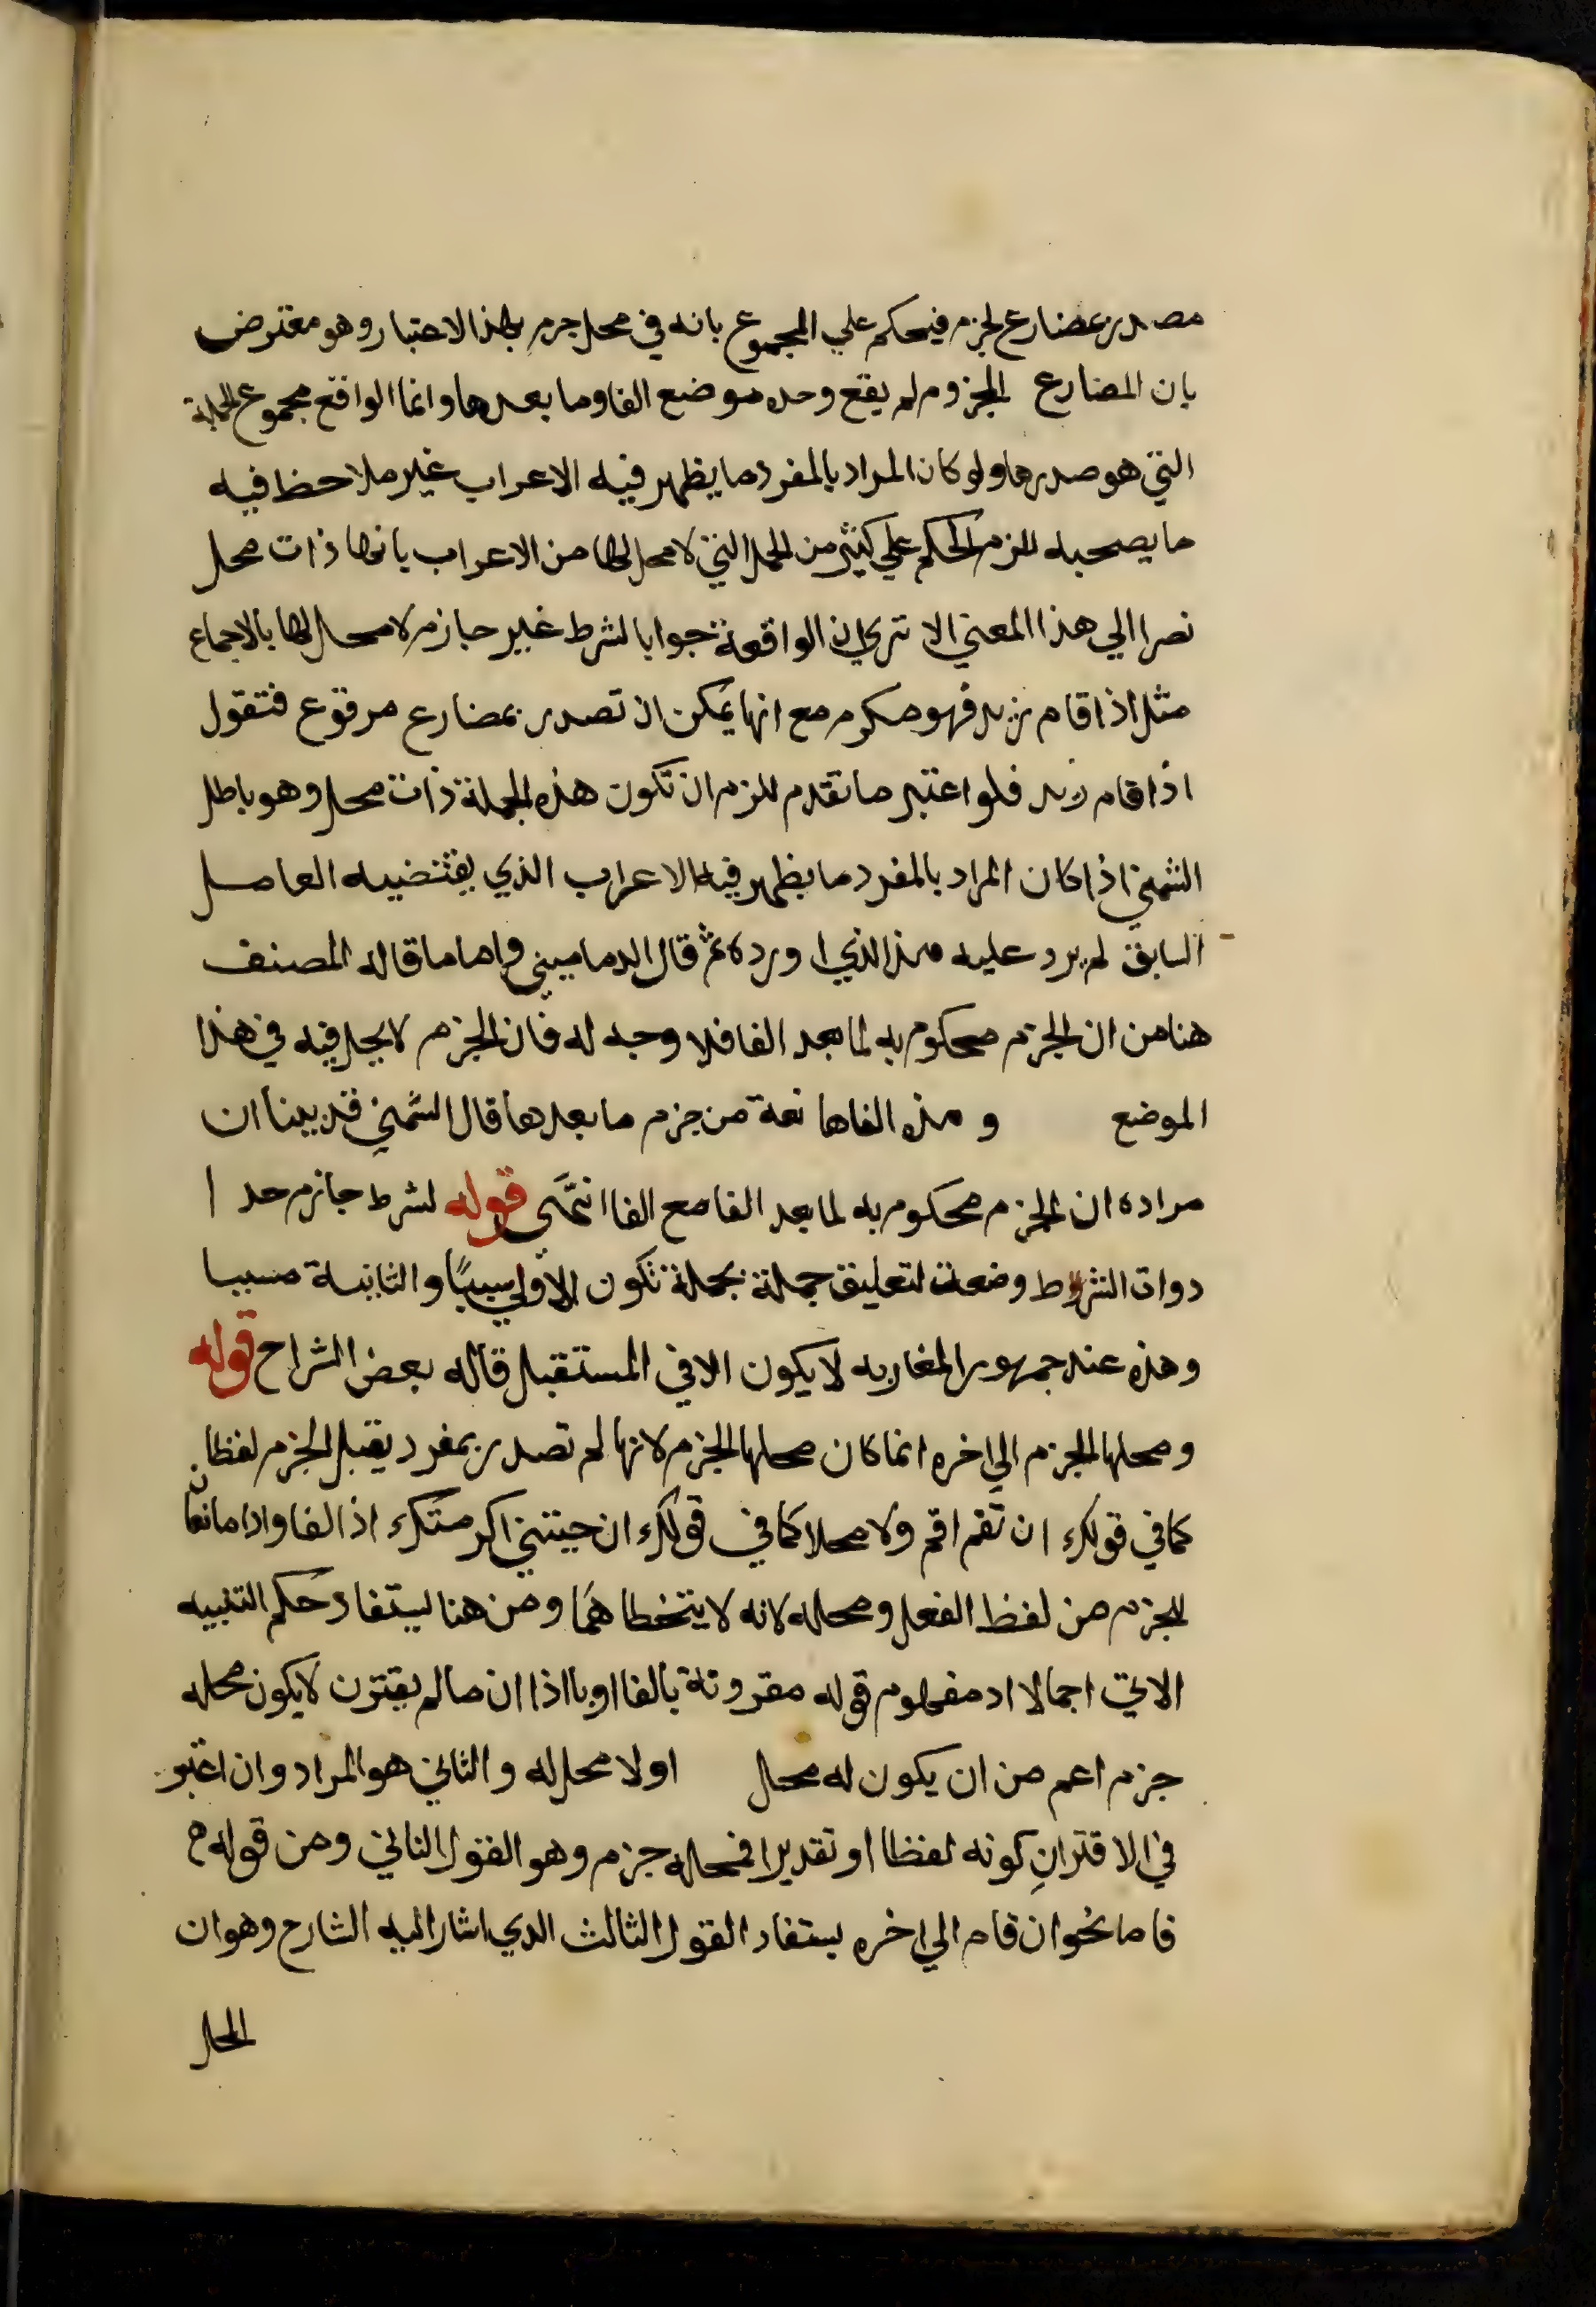 مصدر بمضارع لجزم فيحكم علي المجموع بانه في محل جزم بهذا الاعتبار وهو معترض
بان المضارع المجزوم لم يقع وحده موضع الفا وما بعدها وانما الواقع مجموع الجملة
التي هو صدرها ولو كان المراد بالمفرد ما يظهر فيه الاعراب غير ملاحظ فيه
ما يصحبه للزم الحكم علي كثير من الجمل التي لا محل لها من الاعراب بانها ذات محل
نصرا الي هذا المعني الا تري ان الواقعة جوابا لشرط غير جازم لا محل لها بالاجماع
مثل اذا قام زيد فهو مكرم مع انها يمكن ان تصدر بمضارع مرفوع فتقول
اذا قام زيد فلو اعتبر ما تقدم للزم ان تكون هذه الجملة ذات محل وهو باطل
الشمني اذا كان المراد بالمفرد ما يظهر فيه الاعراب الذي يقتضيه العامل
السابق لم يرد عليه هذا الذي اورده ثم قال الدماميني واما ما قاله المصنف
هنا من ان الجزم محكوم به لما بعد الفا فلا وجه له فان الجزم لا يحل فيه في هذا
الموضع و هذه الفا مانعة من جزم ما بعدها قال الشمني قد بينا ان
مراده ان الجزم محكوم به لما بعد الفا مع الفا انتهى قوله لشرط جازم حد ا
دوات الشرط وضعت لتعليق جملة بجملة تكون الاولي سببًا والثانية مسببا
وهذه عند جمهور المغاربه لا يكون الا في المستقبل قاله بعض الشراح قوله
ومحلها الجزم الي اخره انما كان محلها الجزم لانها لم تصدر بمفرد يقبل الجزم لفظا
كما في قولك ان تقم اقم ولا محلا كما في قولك ان جيتني اكرمتك اذ الفا واذا مانعان
للجزم من لفظ الفعل ومحله لانه لا يتخطاهما ومن هنا يستفاد حكم التنبيه
الاتي اجمالا اد مفهوم قوله مقرونة بالفا او باذا ان ما لم يقترن لا يكون محله
جزم اعم من ان يكون له محل اولا محل له والثاني هو المراد وان اعتبر
في الاقترانِ كونه لفظا او تقديرا فمحله جزم وهو القول الثاني ومن قوله م
فاما نحو ان قام الي اخره يستفاد القول الثالث الدي اشار اليه الشارح وهو ان
المحل